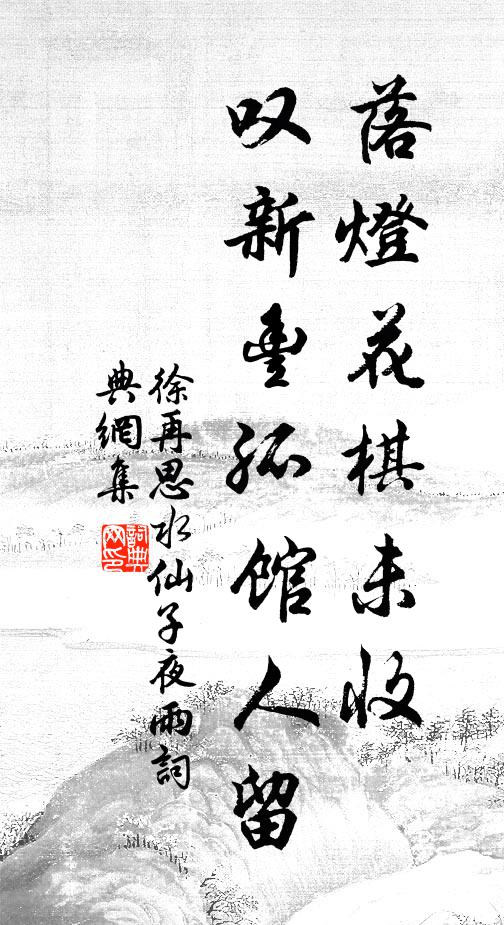 落燈花棋未收
叹新豊孤館人留
徐再思水仙子夜雨詞
典網集
詞典
网印